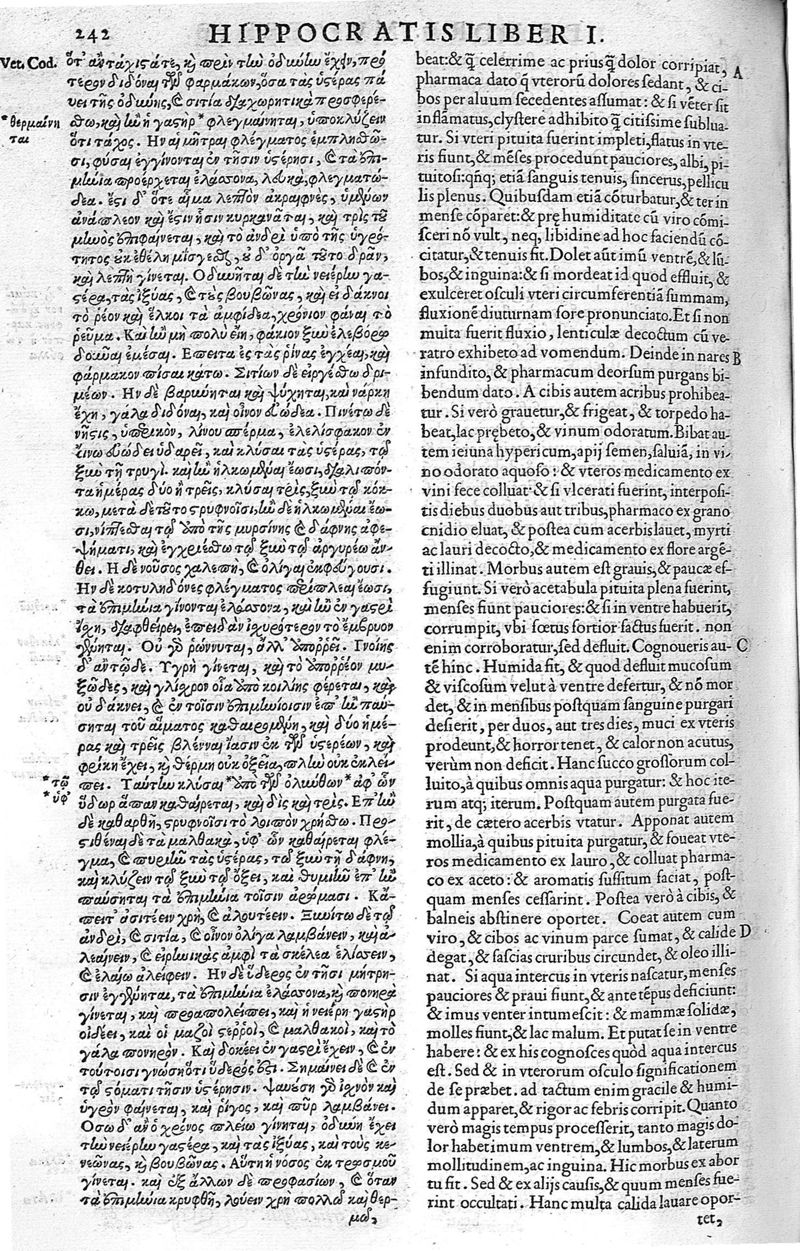 242 HIPPOCRATIS LIBER I.
Vet. Cod.
*θερμαίνη
ται
*τῷ
*ὑφ᾽
ὅτ᾽ ἂν τάχιστά τε, καὶ πρὶν τὴν ὀδύνην ἔχειν, πρό
τερον διδόναι τῶν φαρμάκων, ὅσα τὰς ὑστέρας πα
ύει τῆς ὀδύνης, καὶ σιτία διαχωρητικὰ προσφερέ-
σθω, καὶ ἢν ἡ γαστὴρ *φλεγμαίνηται, ὑποκλύζειν
ὅτι τάχος. Ἢν αἱ μῆτραι φλέγματος ἐμπλησθῶ-
σι, φῦσαι ἐγγίνονται ἐν τῇσιν ὑστέρῃσι, καὶ τὰ ἐπι-
μήνια προέρχεται ἐλάσσονα, λευκὰ, φλεγματώ-
δεα. ἔστι δ᾽ ὅτε αἷμα λεπτὸν ἀκραιφνὲς, ὑμένων
ἀνάπλεον καὶ ἔστιν ᾗσιν κυρκανᾶται, καὶ τρὶς τοῦ
μηνὸς ἐπιφαίνεται, καὶ τῷ ἀνδρὶ ὑπὸ τῆς ὑγρό-
τητος οὐκ ἐθέλει μίσγεσθαι, οὐδ᾽ ὀργᾷ τοῦτο δρᾶν,
καὶ λεπτὴ γίνεται. Ὀδυνῆται δὲ τὴν νειέρην γα-
στέρα, τὰς ἰξύας, καὶ τὰς βουβῶνας, καὶ εἰ δάκνοι
τὸ ῥέον καὶ ἕλκοι τὰ ἀμφίδεα, χρόνιον φάναι τὸ
ῥεῦμα. Καὶ ἢν μὴ πολὺ ἔῃ, φάκιον ξὺν ἐλεβόρῳ
δοῦναι ἐμέσαι. Ἔπειτα ἐς τὰς ῥῖνας ἐγχέαι, καὶ
φάρμακον πῖσαι κάτω. Σιτίων δὲ εἰργέσθω δρι-
μέων. Ἢν δὲ βαρύνηται καὶ ψύχηται, καὶ νάρκη
ἔχῃ, γάλα διδόναι, καὶ οἶνον εὐώδεα. Πινέτω δὲ
νῆστις, ὑπερικὸν, λίνου σπέρμα, ἐλελίσφακον ἐν
οἴνῳ εὐώδει ὑδαρεῖ, καὶ κλύσαι τὰς ὑστέρας, τῷ
ξὺν τῇ τρυγί. καὶ ἢν ἡλκωμέναι ἔωσι, διαλιπόν-
τα ἡμέρας δύο ἢ τρεῖς, κλύσαι τρὶς, ξὺν τῷ κόκ-
κῳ, μετὰ δὲ τοῦτο στρυφνοῖσι, ἢν δὲ ἡλκωμέναι ἔω-
σι, νιπτέσθω τῷ ἀπὸ τῆς μυρσίνης καὶ δάφνης ἀφε-
ψήματι, καὶ ἐγχριέσθω τῷ ξὺν τῷ ἀργυρέῳ ἄν-
θει. Ἡ δὲ νοῦσος χαλεπὴ, καὶ ὀλίγαι ἐκφεύγουσι.
Ἢν δὲ κοτυληδόνες φλέγματος περίπλεαι ἔωσι,
τὰ ἐπιμήνια γίνονται ἐλάσσονα, καὶ ἢν ἐν γαστρὶ
ἴσχῃ, διαφθείρει, ἐπειδὰν ἰσχυρότερον τὸ ἔμβρυον
γένηται. Οὐ γὰρ ῥώννυται, ἀλλ᾽ ἀποῤῥεῖ. Γνοίης
δ᾽ ἂν τῷδε. Ὑγρὴ γίνεται, καὶ τὸ ἀποῤῥέον μυ-
ξῶδες, καὶ γλίσχρον οἷα ἀπὸ κοιλίης φέρεται, καὶ
οὐ δάκνει, καὶ ἐν τοῖσιν ἐπιμηνίοισιν ἐπ᾽ ἢν παύ-
σηται τοῦ αἵματος καθαιρομένη, καὶ δύο ἡμέ-
ρας καὶ τρεῖς βλένναι ἴασιν ἐκ τῶν ὑστερέων, καὶ
φρίκη ἔχει, καὶ θέρμη οὐκ ὀξεῖα, πλὴν οὐκ ἐκλεί-
πει. Ταύτην κλύσαι *ἀπὸ τῶν ὀλύνθων *ἀφ᾽ ὧν
ὕδωρ ἅπαν καθαίρεται, καὶ δὶς καὶ τρίς. Ἐπ᾽ ἢν
δὲ καθαρθῇ, στρυφνοῖσι τὸ λοιπὸν χρήσθω. Προσ-
τιθέναι δὲ τὰ μαλθακὰ, ὑφ᾽ ὧν καθαίρεται φλέ-
γμα, καὶ πυριῆν τὰς ὑστέρας, τῷ ξὺν τῇ δάφνῃ,
καὶ κλύζειν τῷ ξὺν τῷ ὄξει, καὶ θυμιῆν ἐπ᾽ ἢν
παύσηται τὰ ἐπιμήνια τοῖσιν ἀρώμασι. Κἄ-
πειτ᾽ ἀσιτέειν χρὴ, καὶ ἀλουτέειν. Ξυνίτω δὲ τῷ
ἀνδρὶ, καὶ σιτία, καὶ οἶνον ὀλίγα λαμβάνειν, καὶ ἀ-
λεαίνειν, καὶ εἰρίωκας ἀμφὶ τὰ σκέλεα ἑλίσσειν,
καὶ ἐλαίῳ ἀλείφειν. Ἢν δὲ ὕδερος ἐν τῇσι μήτρῃ-
σιν ἐγγένηται, τὰ ἐπιμήνια ἐλάσσονα, καὶ πονηρὰ
γίνεται, καὶ προαπολείπει, καὶ ἡ νειέρη γαστὴρ
οἰδέει, καὶ οἱ μαζοὶ στεῤῥοὶ, καὶ μαλθακοὶ, καὶ τὸ
γάλα πονηρόν. Καὶ δοκέει ἐν γαστρὶ ἔχειν, καὶ ἐν
τούτοισι γνώσῃ ὅτι ὕδερός ἐστι. Σημαίνει δὲ καὶ ἐν
τῷ στόματι τῇσιν ὑστέρῃσιν. ψαυέσῃ γὰρ ἰσχνὸν καὶ
ὑγρὸν φαίνεται, καὶ ῥῖγος, καὶ πῦρ λαμβάνει.
Ὅσῳ δ᾽ ἂν ὁ χρόνος πλείω γίνηται, ὀδύνη ἔχει
τὴν νειέρην γαστέρα, καὶ τὰς ἰξύας, καὶ τοὺς κε-
νεῶνας, καὶ βουβῶνας. Αὕτη ἡ νόσος ἐκ τρωσμοῦ
γίνεται. καὶ ἐξ ἄλλων δὲ προφασίων, καὶ ὅταν
τὰ ἐπιμήνια κρυφθῇ, λούειν χρὴ πολλῷ καὶ θερ-
μῷ,
beat:& q̃ celerrime ac priusq̃ dolor corripiat, A
pharmaca dato q̃ vterorũ dolores sedant, & ci-
bos per aluum secedentes assumat: & si vẽter sit
inflãmatus, clystere adhibito q̃ citissime sublua-
tur. Si vteri pituita fuerint impleti, flatus in vte-
ris fiunt, & mẽses procedunt pauciores, albi, pi-
tuitosi: qñq; etiã sanguis tenuis, sincerus, pellicu
lis plenus. Quibusdam etiã cõturbatur, & ter in
mense cõparet: & prę humiditate cũ viro cõmi-
sceri nõ vult, neq, libidine ad hoc faciendũ cõ-
citatur, & tenuis fit. Dolet aũt imũ ventrẽ, & lũ-
bos, & inguina: & si mordeat id quod effluit, &
exulceret osculi vteri circumferentiã summam,
fluxionẽ diuturnam fore pronunciato. Et si non
multa fuerit fluxio, lenticulæ decoctum cũ ve-
ratro exhibeto ad vomendum. Deinde in nares B
infundito, & pharmacum deorsum purgans bi-
bendum dato. A cibis autem acribus prohibea-
tur. Si verò grauetur, & frigeat, & torpedo ha-
beat, lac prębeto, & vinum odoratum. Bibat au-
tem ieiuna hypericum, apij semen, saluiã, in vi-
no odorato aquoso: & vteros medicamento ex
vini fece colluat: & si vlcerati fuerint, interposi-
tis diebus duobus aut tribus, pharmaco ex grano
cnidio eluat, & postea cum acerbis lauet, myrti
ac lauri decocto, & medicamento ex flore argẽ-
ti illinat. Morbus autem est grauis, & paucæ ef-
fugiunt. Si verò acetabula pituita plena fuerint,
menses fiunt pauciores: & si in ventre habuerit,
corrumpit, vbi fœtus fortior factus fuerit. non
enim corroboratur, sed defluit. Cognoueris au- C
tẽ hinc. Humida fit, & quod defluit mucosum
& viscosum velut à ventre defertur, & nõ mor
det, & in mensibus postquam sanguine purgari
desierit, per duos, aut tres dies, muci ex vteris
prodeunt, & horror tenet, & calor non acutus,
verùm non deficit. Hanc succo grossorum col-
luito, à quibus omnis aqua purgatur: & hoc ite-
rum atq; iterum. Postquam autem purgata fue-
rit, de cætero acerbis vtatur. Apponat autem
mollia, à quibus pituita purgatur, & foueat vte-
ros medicamento ex lauro, & colluat pharma-
co ex aceto: & aromatis suffitum faciat, post-
quam menses cessarint. Postea verò à cibis, &
balneis abstinere oportet. Coeat autem cum
viro, & cibos ac vinum parce sumat, & calide D
degat, & fascias cruribus circundet, & oleo illi-
nat. Si aqua intercus in vteris nascatur, menses
pauciores & praui fiunt, & ante tẽpus deficiunt:
& imus venter intumescit: & mammæ solidæ,
molles fiunt, & lac malum. Et putat se in ventre
habere: & ex his cognosces quòd aqua intercus
est. Sed & in vterorum osculo significationem
de se præbet. ad tactum enim gracile & humi-
dum apparet, & rigor ac febris corripit. Quanto
verò magis tempus processerit, tanto magis do-
lor habet imum ventrem, & lumbos, & laterum
mollitudinem, ac inguina. Hic morbus ex abor
tu fit. Sed & ex alijs causis, & quum menses fue-
rint occultati. Hanc multa calida lauare opor-
tet,